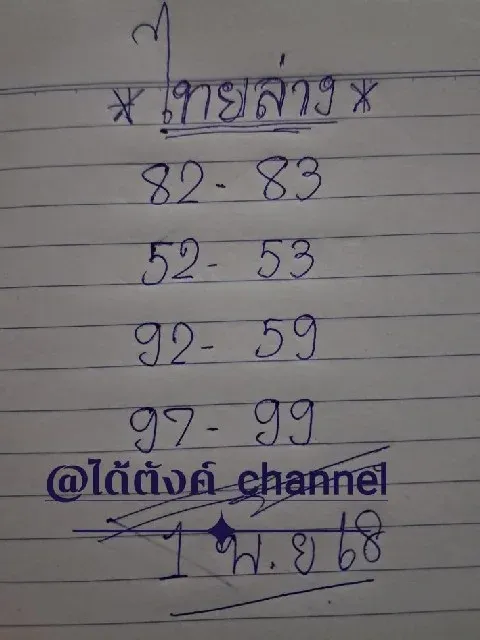 * ไทยล่าง *
82 - 83
52 - 53
92 - 59
97 - 99
@ได้ตังค์ channel
1 พ.ย 68